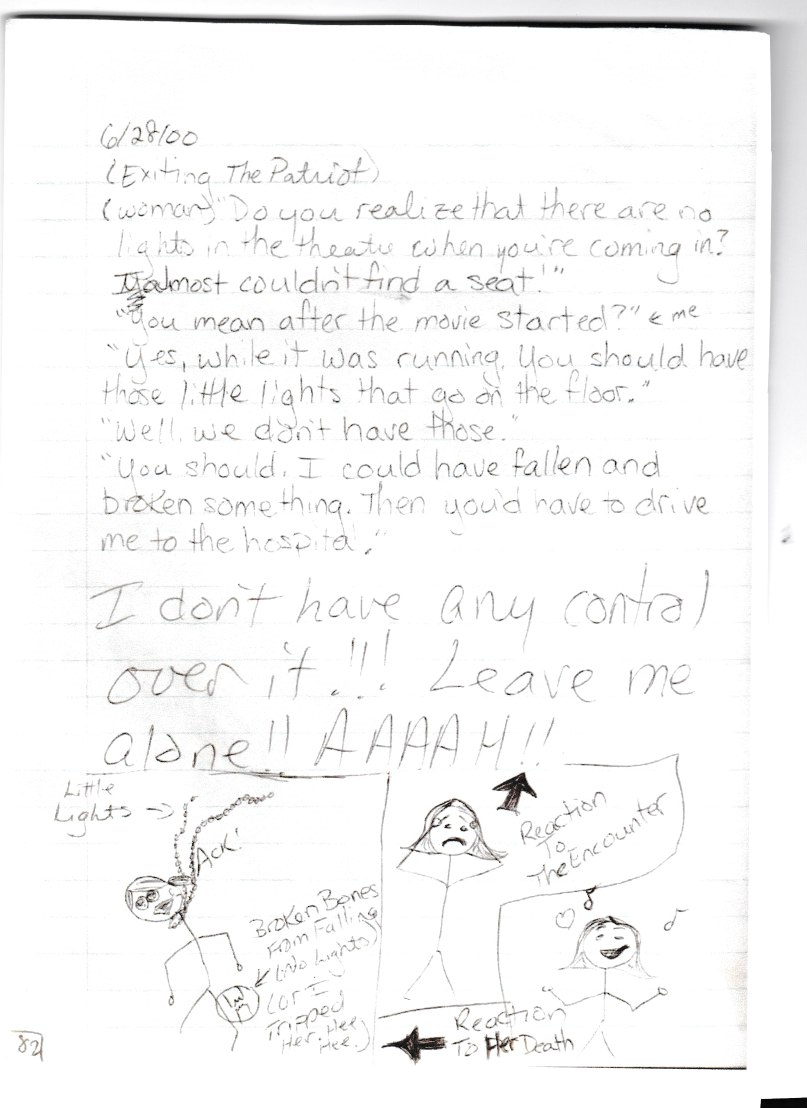 6/28/00
(Exiting The Patriot)
(woman) "Do you realize that there are no
lights in the theatre when you're coming in?
I almost couldn't find a seat!"
"You mean after the movie started?" ← me
"Yes, while it was running. You should have
those little lights that go on the floor."
"Well, we don't have those."
"You should. I could have fallen and
broken something. Then you'd have to drive
me to the hospital."
I don't have any control
over it!!! Leave me
alone!! AAAAH!!
Little
Lights →
Ack!
Broken Bones
From Falling
(No Lights)
(or I
Tripped
Her. Hee
Hee.)
Reaction
To
The Encounter
Reaction
To Her Death
82